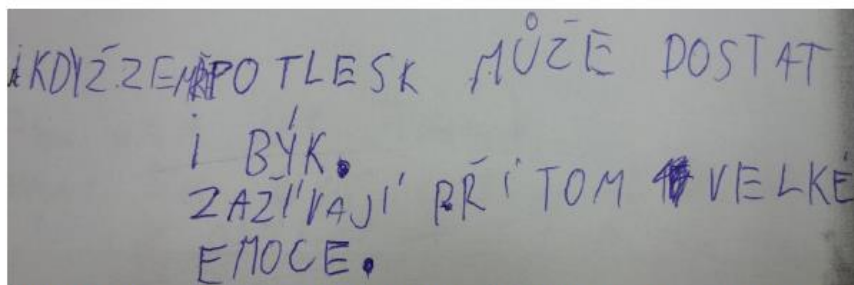 I KDYŽ ZEMŘE POTLESK MŮŽE DOSTAT
I BÝK.
ZAŽÍVAJÍ PŘÍTOM VELKÉ
EMOCE.